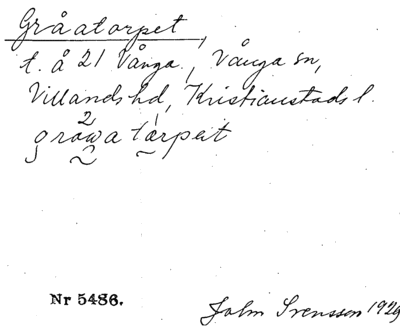 Gråatorpet,
t. å 21 Vånga, Vånga sn,
Villands hd, Kristianstads l.
gråwatårpeit
Nr 5486.
John Svensson 1929